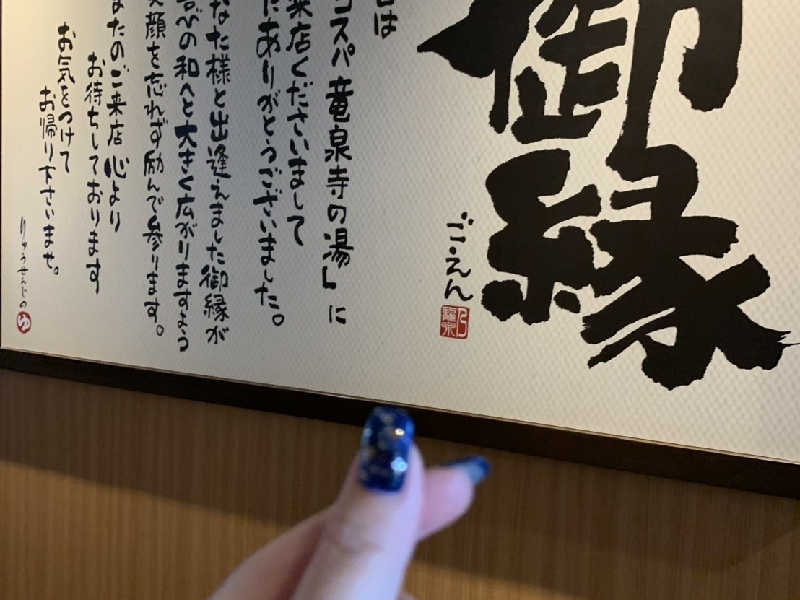 御縁
ごえん
は
コスパ竜泉寺の湯」に
来店くださいまして
ありがとうございました。
なた様と出逢えました御縁が
喜びの和へと大きく広がりますよう
笑顔を忘れず励んで参ります。
たのご来店心より
お待ちしております
お気をつけて
お帰り下さいませ。
りゅうせんじの